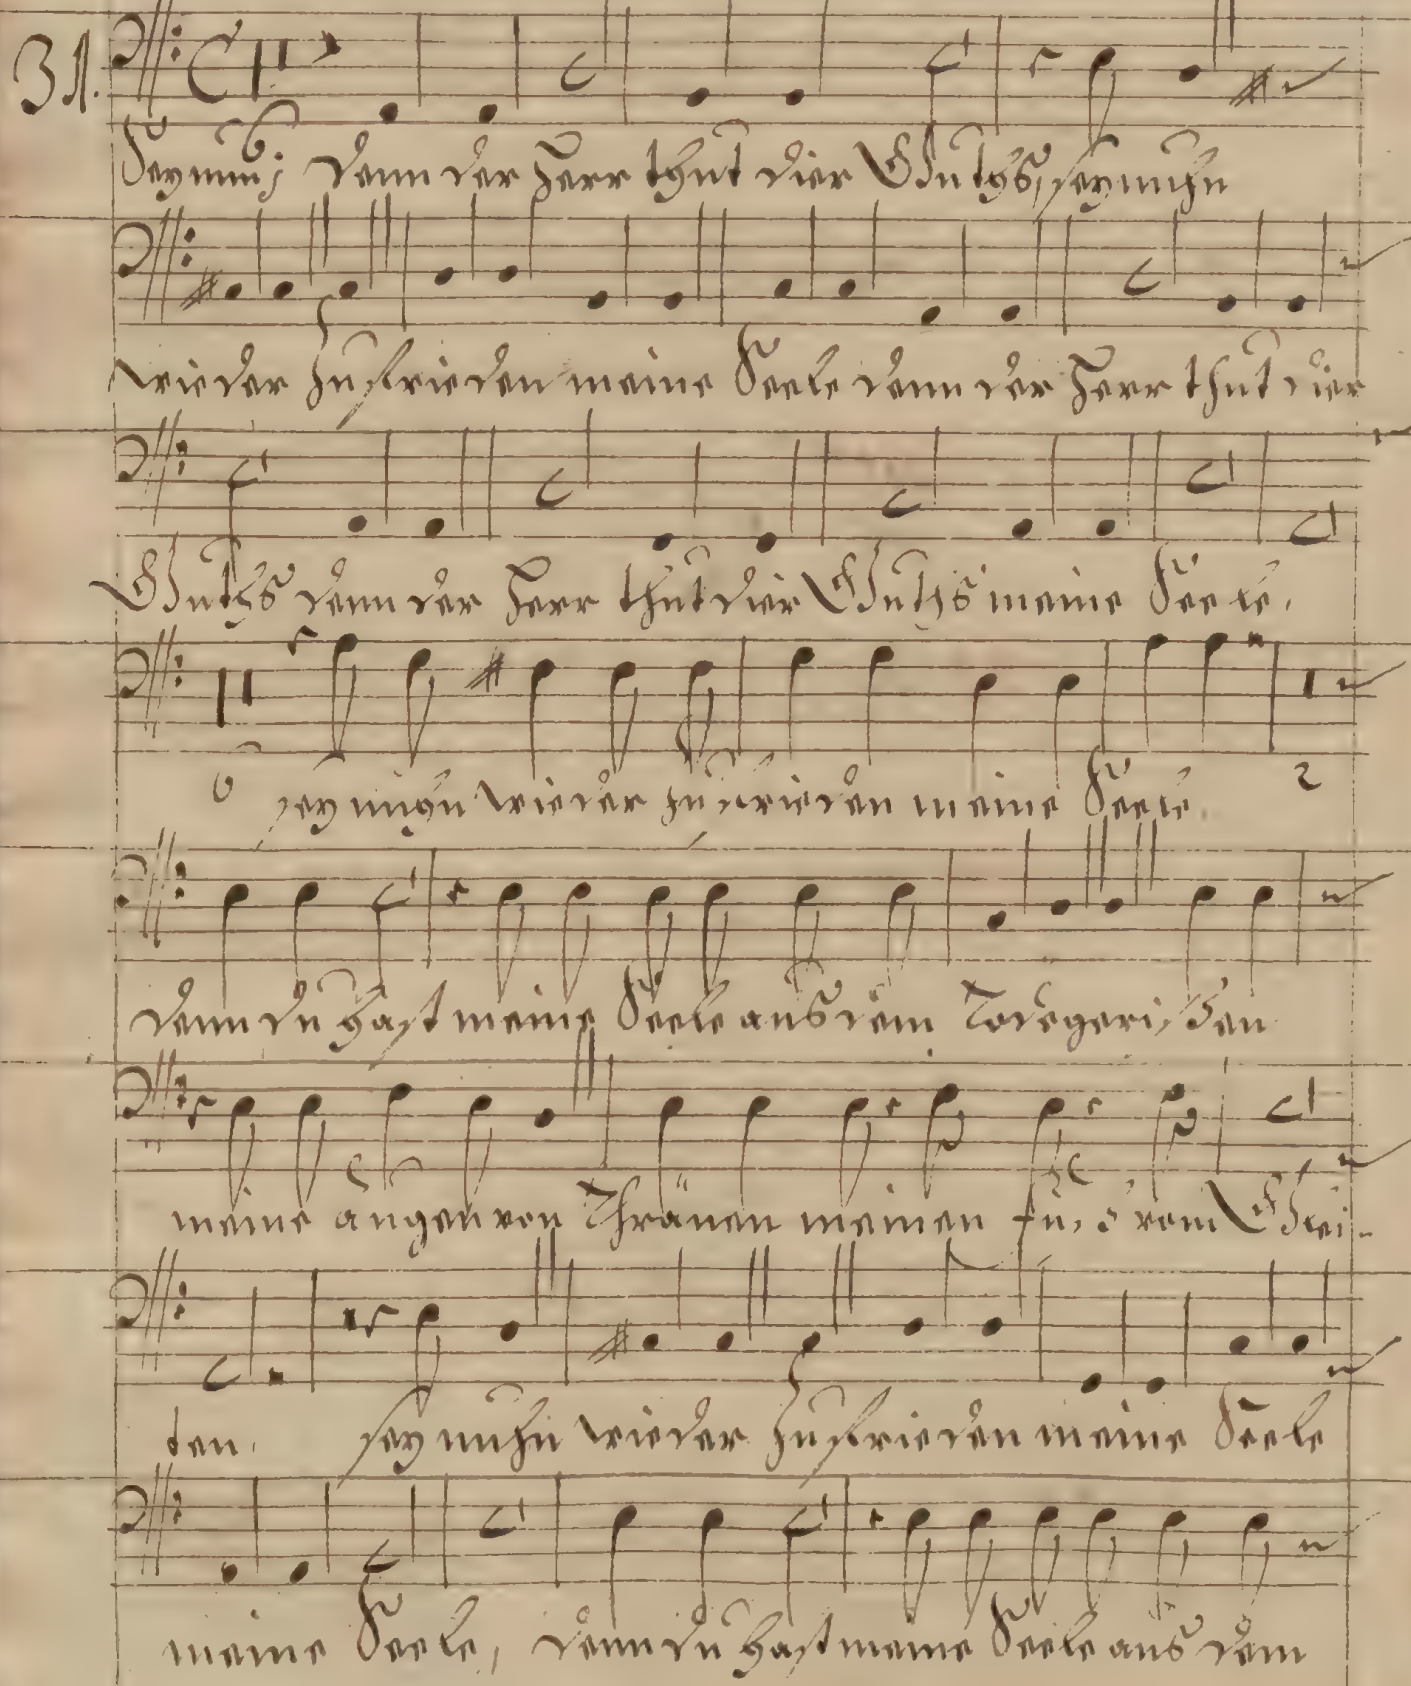 31.
Sey nun denn der Herr thut dier Guths, sey nuhn
wieder zufrieden meine Seele denn der Herr thut dier
Guths denn der Herr thut dier Guths meine Seele.
6 sey nuhn wieder zufrieden meine Seele. 2
denn du hast meine Seele aus dem Tode gerißen
meine augen von Thränen meinen fuß vom Glei-
ten. sey nuhn wieder zufrieden meine Seele
meine Seele, denn du hast meine Seele aus dem